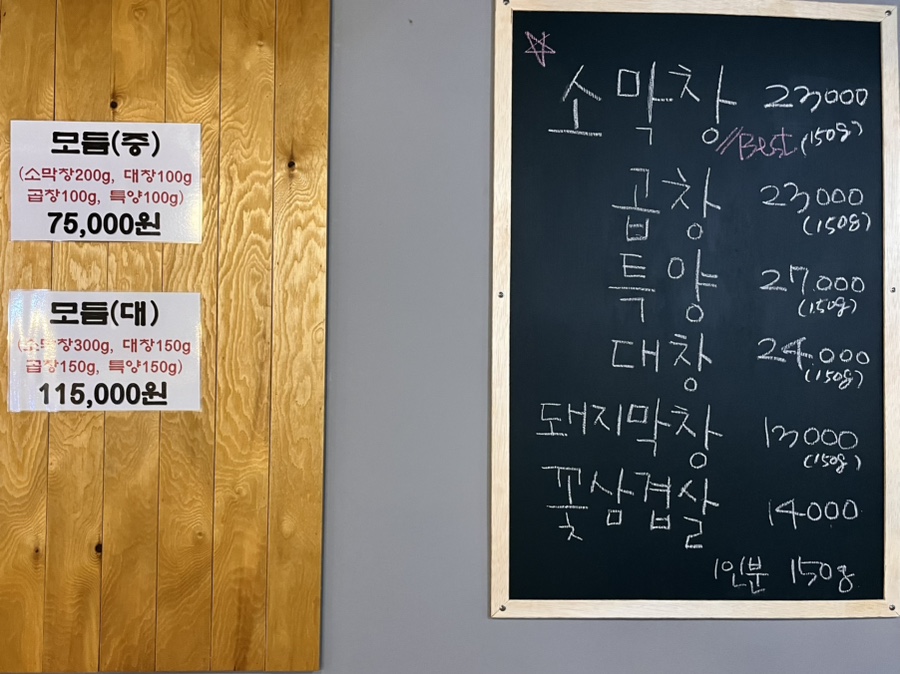 모듬(중)
(소막창200g, 대창100g
곱창100g, 특양100g)
75,000원
모듬(대)
(소막창300g, 대창150g
곱창150g, 특양150g)
115,000원
소막창 23,000
//Best (150g)
곱창 23,000
(150g)
특양 27,000
(150g)
대창 24,000
(150g)
돼지막창 13,000
(150g)
꽃삼겹살 14,000
1인분 150g